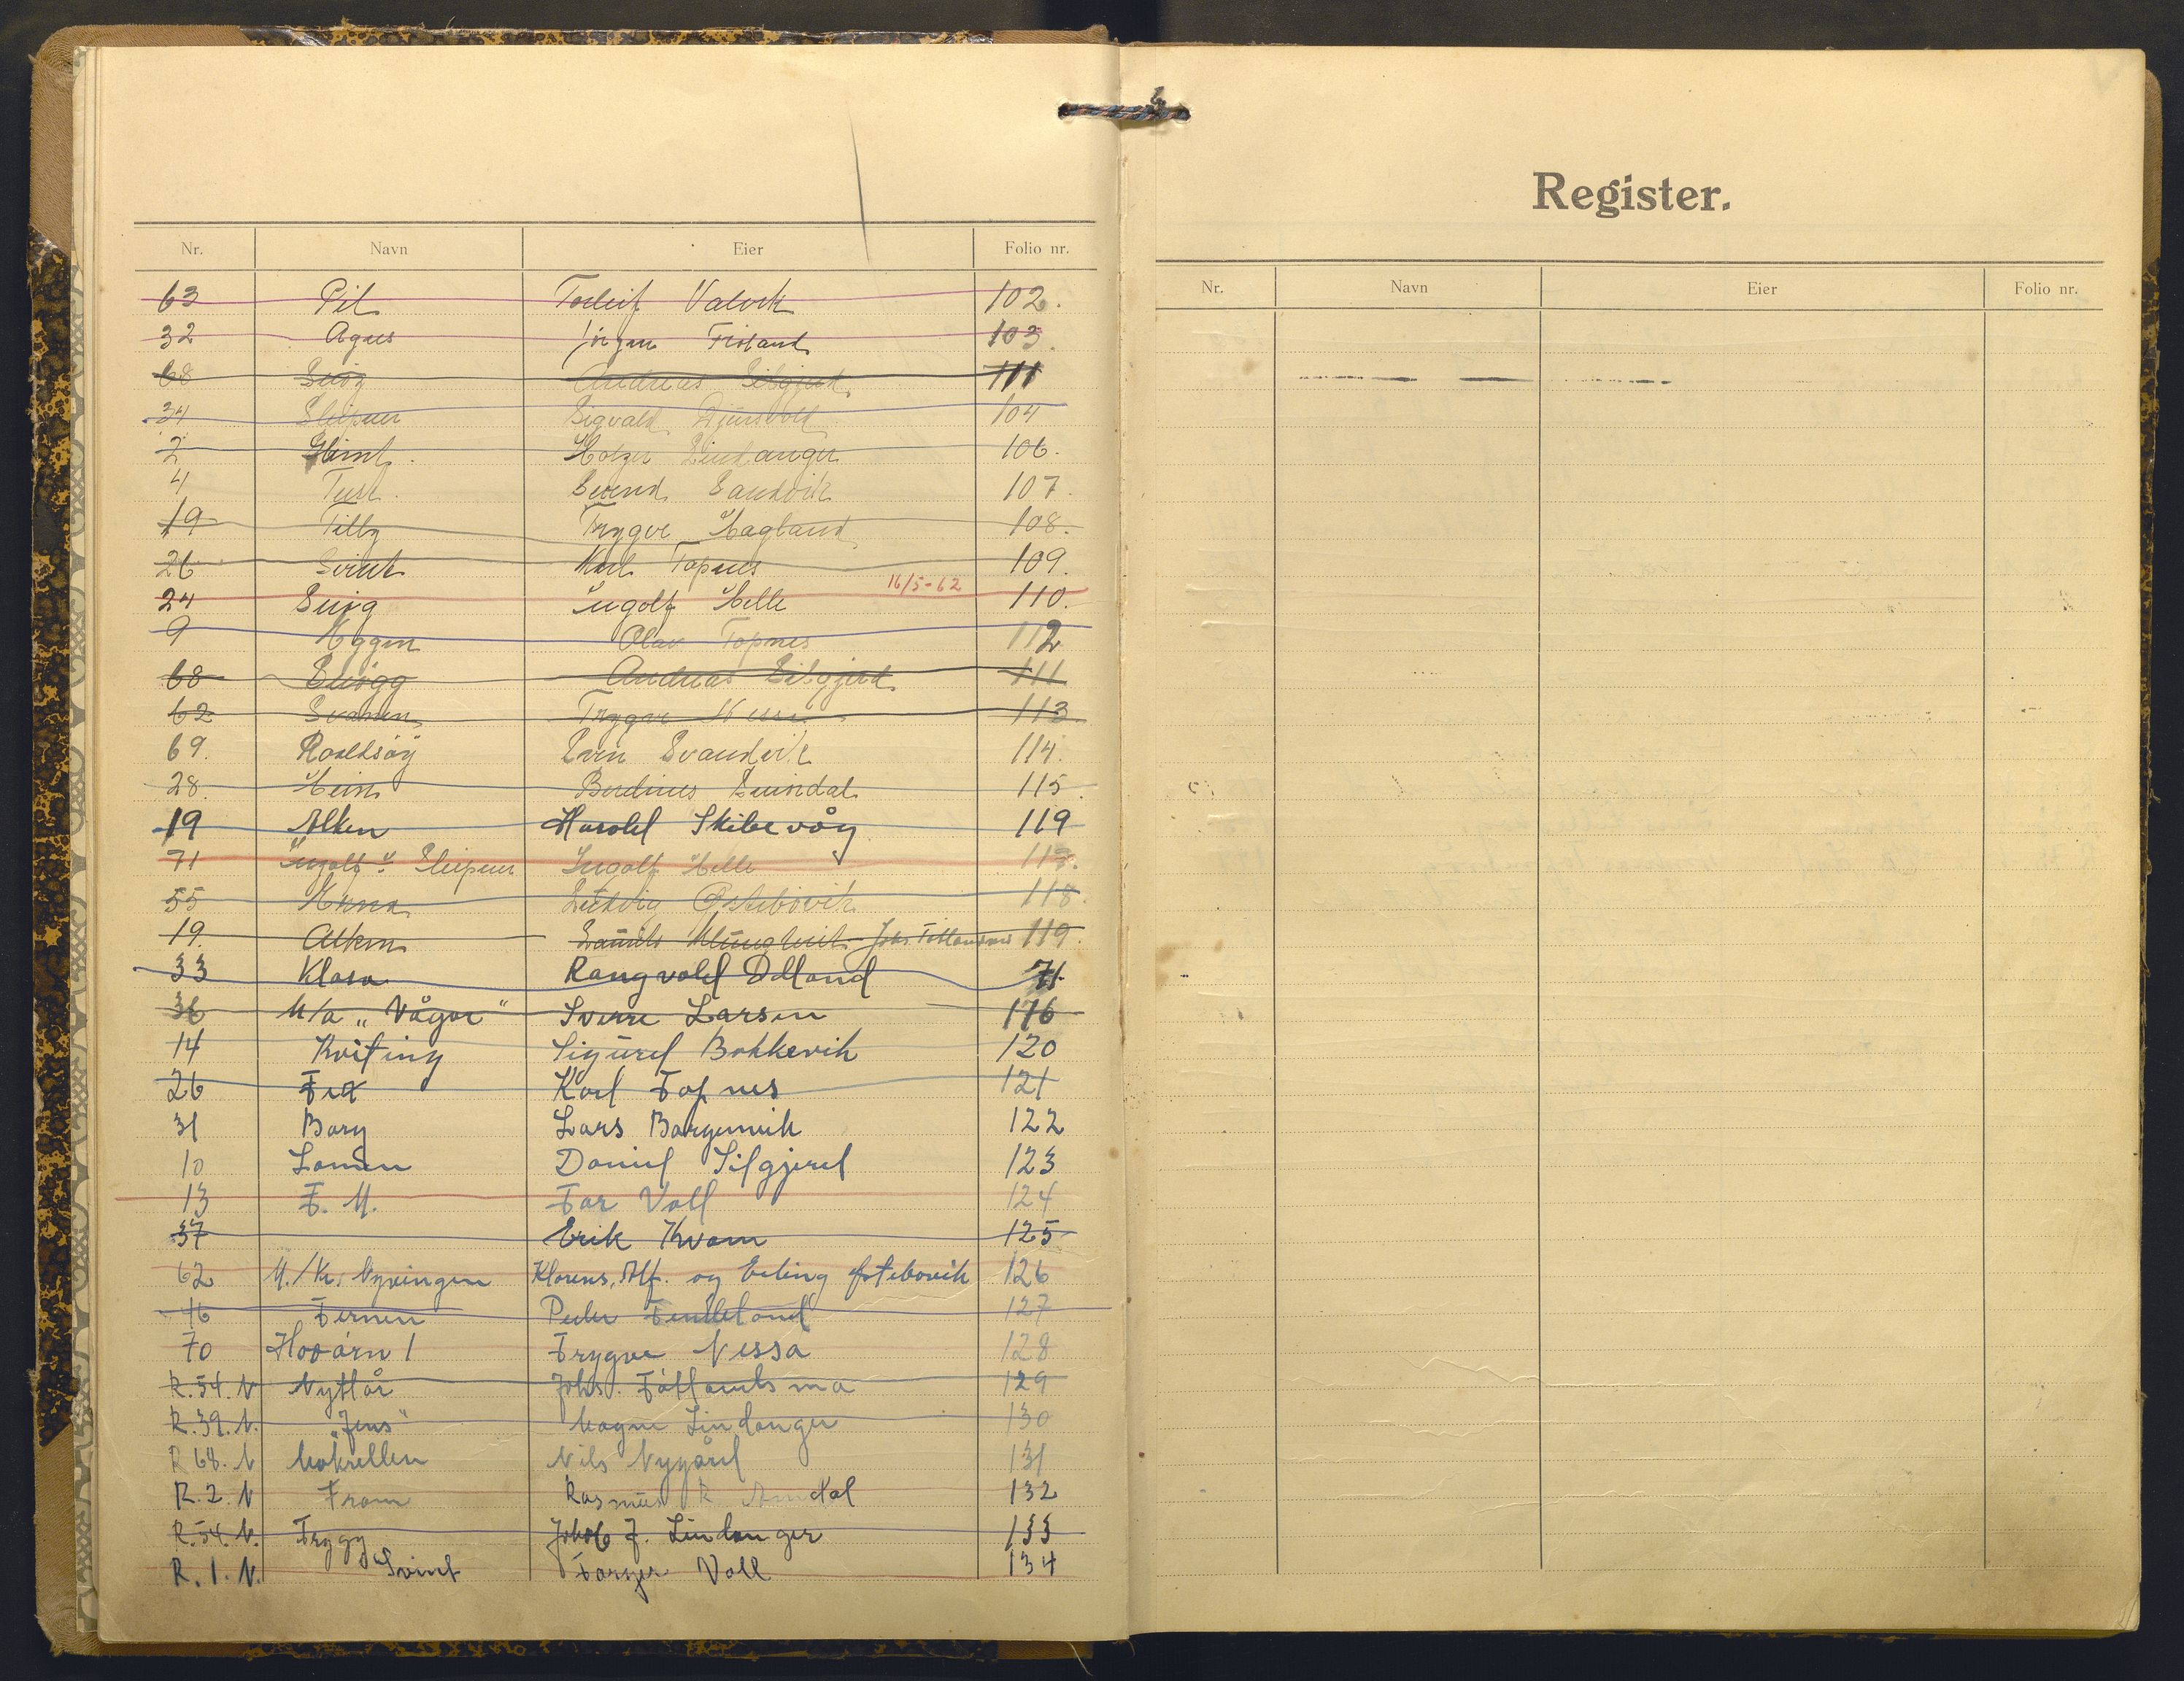 Nr. Navn Eier Folio nr.
63 Pil Torleif Valvik 102.
32 Agnes Jörgen Tröland 103.
68 Snög Andreas Eilgjerd 111
34 Sleipner Sigvald Djursvoll 104
2 Glimt. Holger Lindanger 106.
4 Tust. Svend Sandvik 107.
19 Tilby Trygve Hagland 108.
26 Svint Karl Topnes 109.
24 Snög Ingolf Helle 16/5-62 110.
9 Hggen Olav Topnes 112
68 Snögg Andreas Eilgjerd 111
62 Svanen Trygve Nessa 113
69. Roaldsöy Sven Svandvik 114.
28. Heim Berdines Svindal 115.
19 Alken Harald Skibevåg 119
71 Ingolf Sleipner Ingolf Helle 117.
55 Ludvig Østebövik 118.
19. Alken Johs. Tötlandsmo 119.
33 Klara Rangvald Odland 71.
36 M/a „Vågar" Sverre Larsen 116
14 Kviting Sigurd Bokkevik 120
26 Karl Topnes 121
31 Barg Lars Bargemvik 122
10 Lomen Daniel Silgjerd 123
13 T. M. Tor Voll 124
37 Erik Kvam 125
62 M./K. Nyvingen Klarens, Alf. og Erling Østebøvik 126
46 Ternen Peder Tendeland 127
70 Havörn 1 Trygve Nessa 128
R.54.N Nytlår Johs. Tötlandsmo 129
R.39.N. „Jens" Magne Lindanger 130
R 68. N Makrellen Nils Nygård 131
R.2. N Fram Rasmus R. Amdal 132
R.54.N. Trygg Jakob J. Lindanger 133
R. 1. N. Svint Torger Voll 134
Register.
Nr. Navn Eier Folio nr.